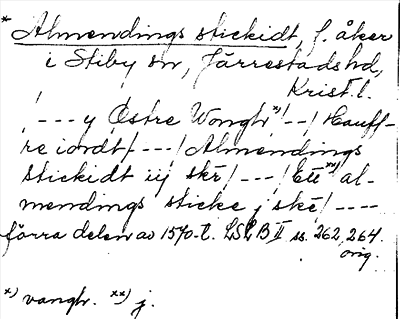 * Almendings stickidt, f. åker
i Stiby sn, Järrestads hd,
Krist. l.
/---y Østre Wongh x)/--/ Hauff-
re iordt/---/ Almendings
stickidt iij skē/---/ Ett xx) al-
mendings sticke j skē/----
förra delen av 1570-t. LSLB II ss. 262, 264.
orig.
x) vangh. xx) j.